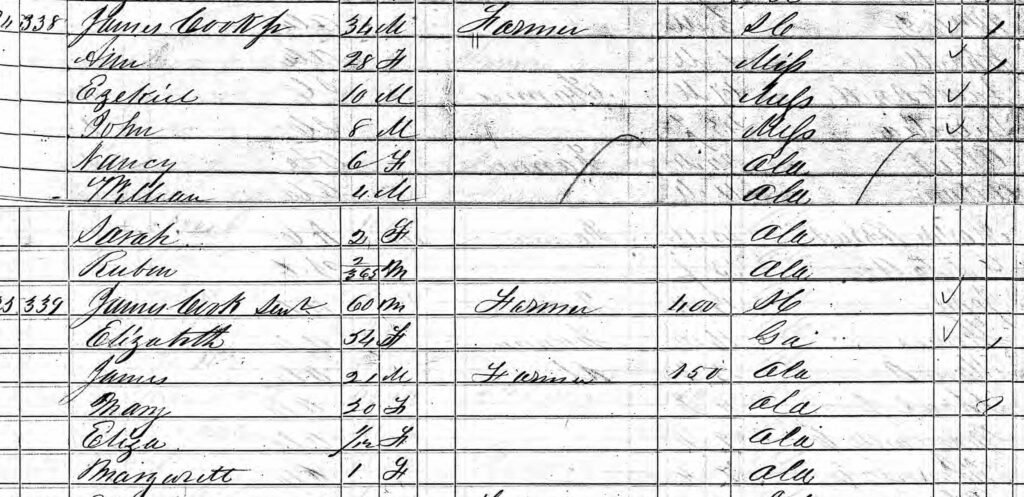 338 James Cook jr 34 M Farmer SC 1
Ann 28 F Miss 1
Ezekiel 10 M Miss
John 8 M Miss
Nancy 6 F Ala
William 4 M Ala
Sarah 2 F Ala
Ruben 2/365 M Ala
339 James Cook Senr 60 M Farmer 400 SC
Elizabeth 54 F Ga 1
James 21 M Farmer 150 Ala
Mary 20 F Ala
Eliza F Ala
Margarett 1 F Ala